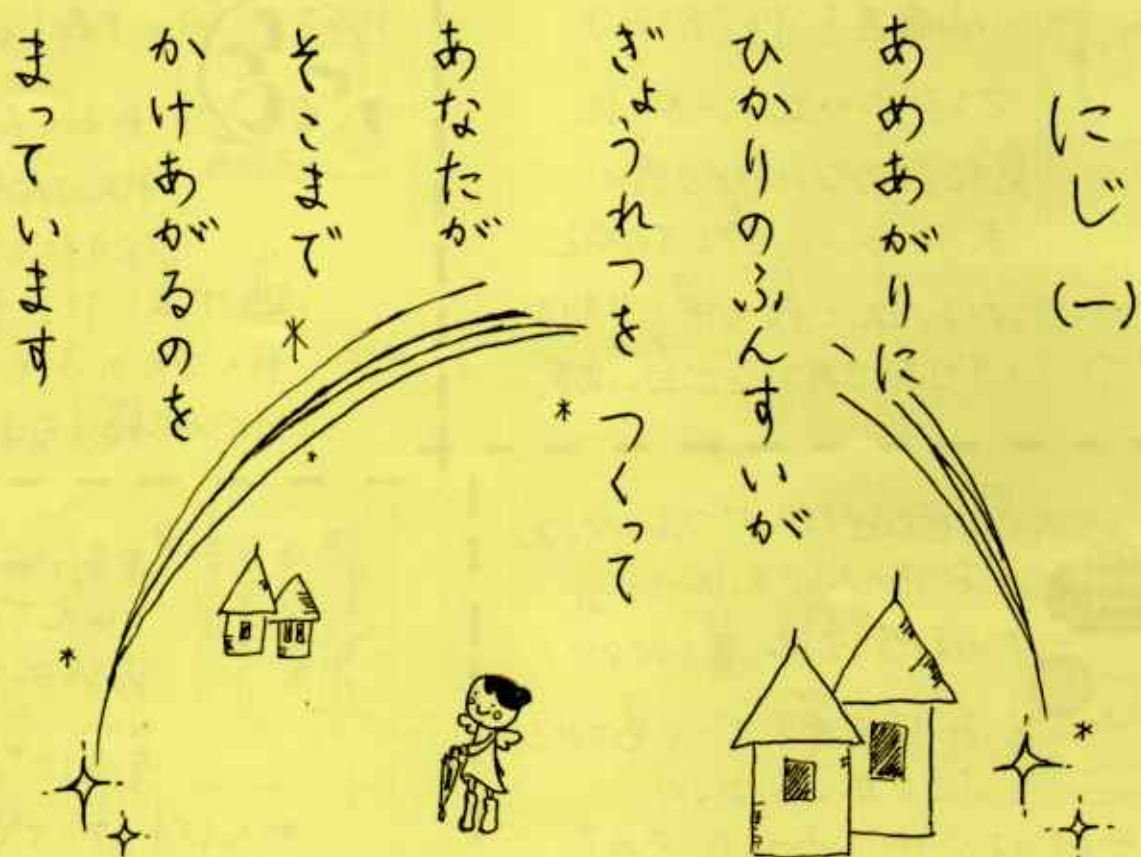 にじ (一)
あめあがりに
ひかりのふんすいが
ぎょうれつを つくって
あなたが
そこまで
かけあがるのを
まっています